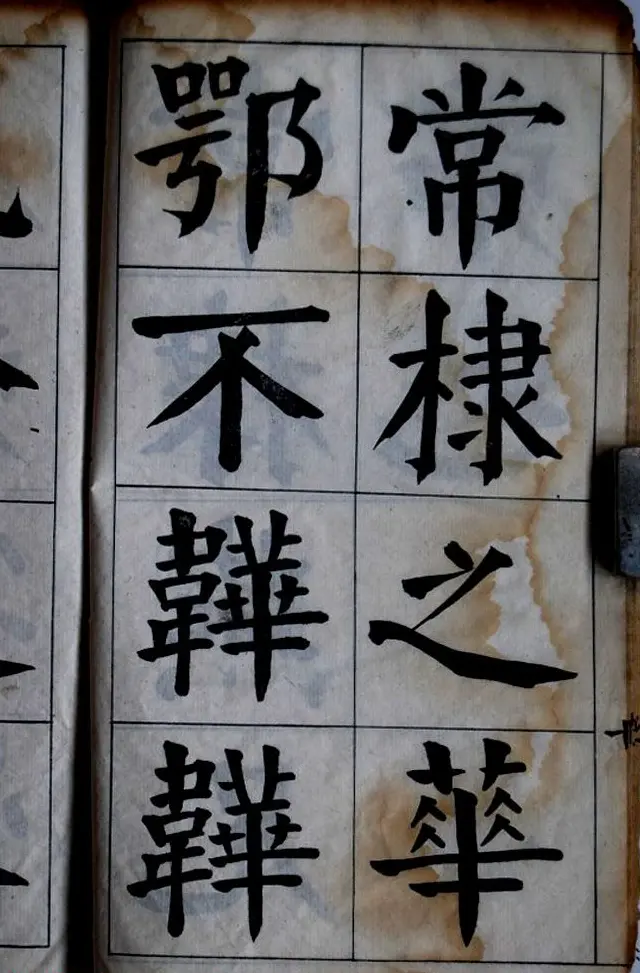 常棣之華
鄂不韡韡